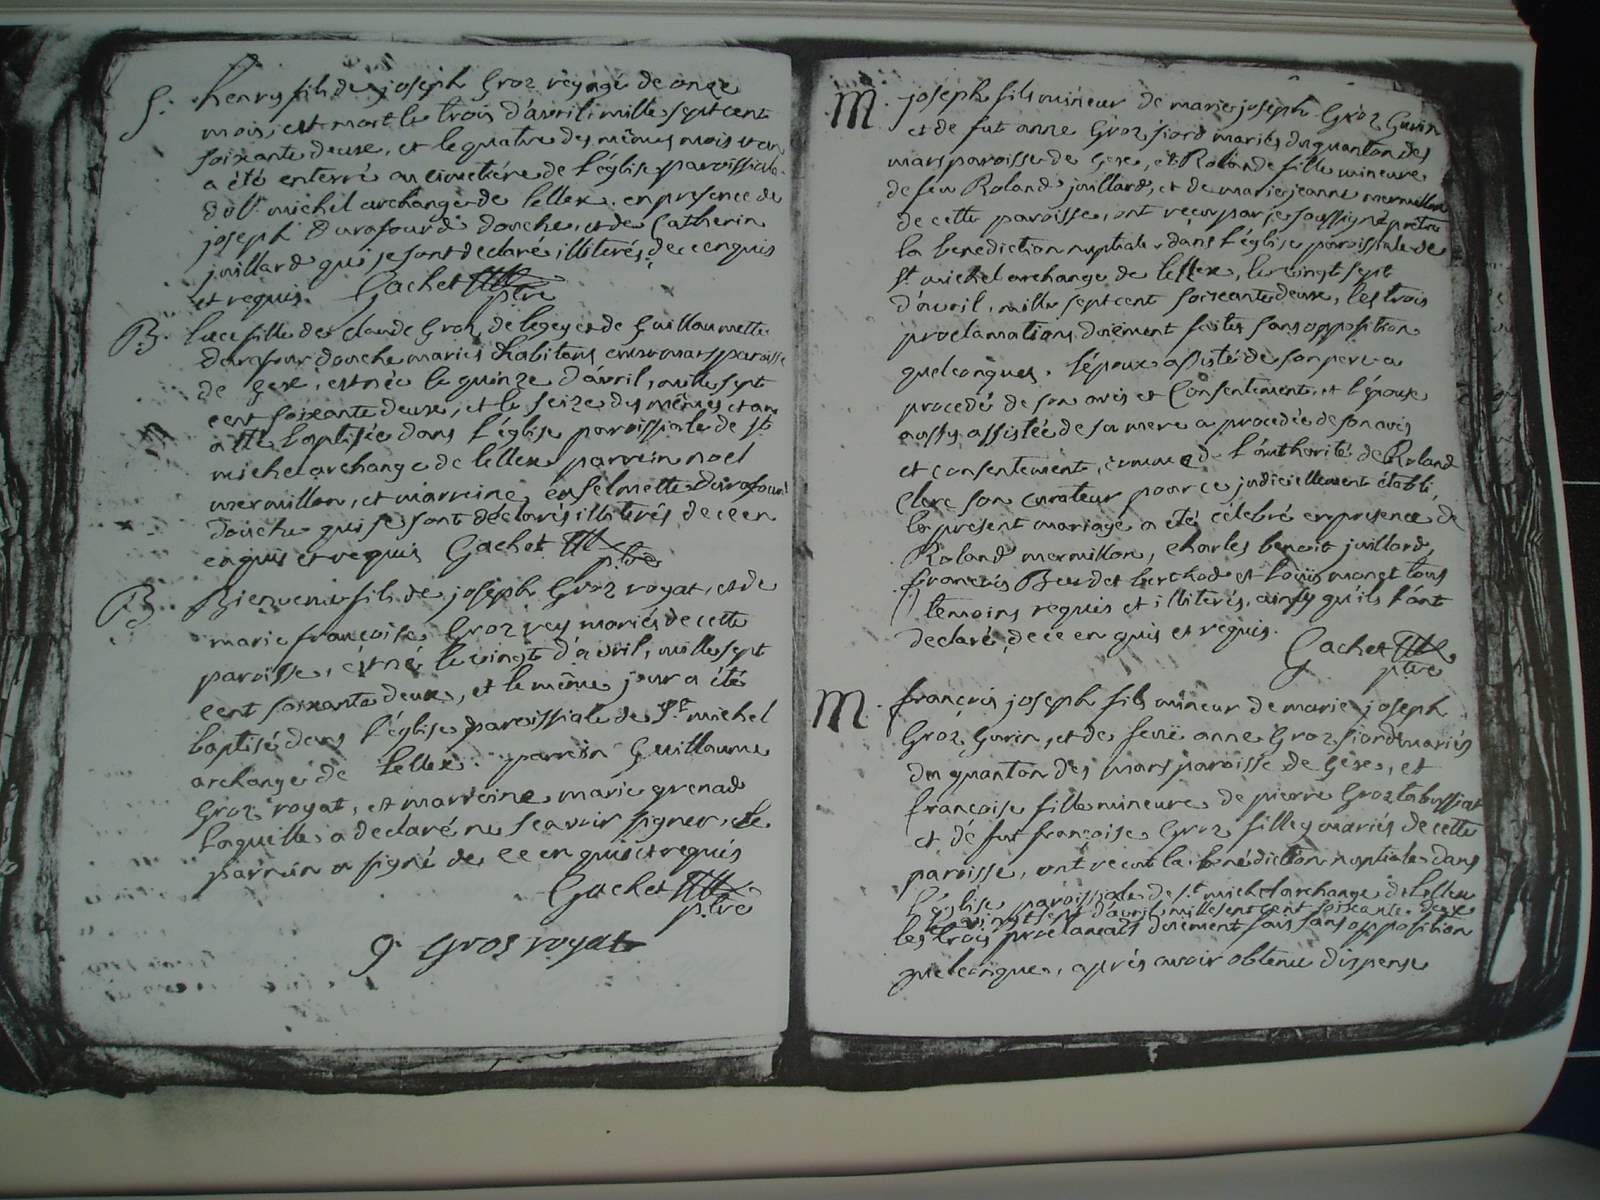 S. henry fils de joseph Groz rey agé de onze
mois, est mort le trois d'avril, mille sept cent
soixante deux, et le quatre des mêmes mois et an
a été enterré au cimetière de l'église paroissiale
de St. michel archange de lellex, en presence de
joseph Durafourd douche, et de Catherin
juillard qui se sont declaré illiterés, de ce enquis
et requis. Gachet ptre
B. fille de claude Groz de legey et de Guillaumette
durafour douche mariés habitans en mars paroisse
de Gex, est née le quinze d'avril, mille sept
cent soixante deux, et le seize des mêmes et an
a été baptisée dans l'église paroissiale de St.
michel archange de lellex parrein noel
mermillon, et marreine enselmette Durafourd
douche qui se sont déclarés illiterés, de ce en
enquis et requis Gachet ptre
B. Bienvenu fils de joseph Groz royat, et de
marie françoise Groz rey mariés de cette
paroisse, est né le vingt d'avril, mille sept
cent soixante deux, et le même jour a été
baptisé dans l'église paroissiale de St. michel
archange de lellex. parrein Guillaume
Groz royat, et marreine marie grenad
laquelle a declaré ne scavoir signer, et le
parrein a signé de ce enquis et requis
Gachet ptre
g. gros royat
M. joseph fils mineur de marie joseph Groz Gurin
et de fut anne Groz fiord mariés du quanton des
mars paroisse de Gex, et Rolande fille mineure
de feu Roland juillard, et de marie jeanne mermillon
de cette paroisse, ont reçu par je soussigné prêtre
la benediction nuptiale dans l'église paroissiale de
St. michel archange de lellex, le vingt sept
d'avril, mille sept cent soixante deux, les trois
proclamations duëment faites sans opposition
quelconques. l'époux assisté de son pere a
procedé de son avis et Consentement, et l'épouse
aussy assistée de sa mere a procedée de son avis
et consentement, comme de l'authorité de Roland
Clerc son curateur pour ce judiciellement établi,
le present mariage a été célébré en presence de
Roland mermillon, Charles benoit juillard,
françois Berdet berthod et Loüis monet tous
temoins requis et illiterés, ainsy qu'ils l'ont
declaré, de ce enquis et requis.
Gachet ptre
M. françois joseph fils mineur de marie joseph
Groz Gurin, et de feüe anne Groz fiord mariés
du quanton des mars paroisse de Gex, et
françoise fille mineure de pierre Groz tabussiat
et de fut françoise Groz filley mariés de cette
paroisse, ont recut la benédiction nuptiale dans
l'église paroissiale de St. michel archange de lellex
le vingt sept d'avril mille sept cent soixante deux
les trois proclamats duëment fais sans opposition
quelconques, après avoir obtenu dispense